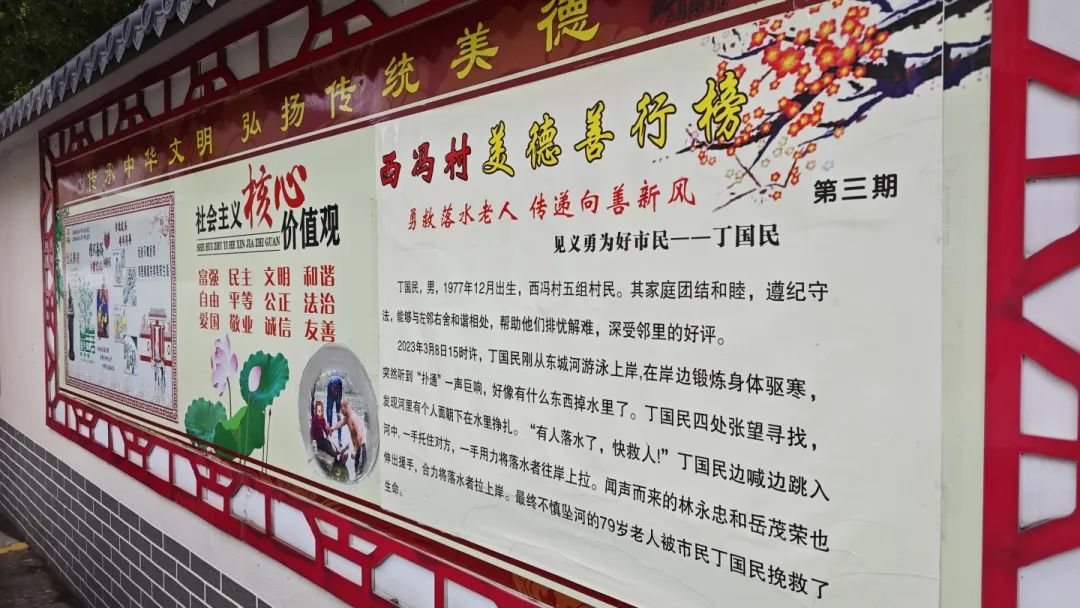 传承中华文明 弘扬传统美德
社会主义核心价值观
SHE HUI ZHU YI HE XIN JIA ZHI GUAN
富强 民主 文明 和谐
自由 平等 公正 法治
爱国 敬业 诚信 友善
西冯村美德善行榜
第三期
勇救落水老人 传递向善新风
见义勇为好市民——丁国民
丁国民，男，1977年12月出生，西冯村五组村民。其家庭团结和睦，遵纪守
法，能够与左邻右舍和谐相处，帮助他们排忧解难，深受邻里的好评。
2023年3月8日15时许，丁国民刚从东城河游泳上岸,在岸边锻炼身体驱寒，
突然听到“扑通”一声巨响，好像有什么东西掉水里了。丁国民四处张望寻找，
发现河里有个人面朝下在水里挣扎。“有人落水了，快救人!”丁国民边喊边跳入
河中，一手托住对方，一手用力将落水者往岸上拉。闻声而来的林永忠和岳茂荣也
伸出援手，合力将落水者拉上岸。最终不慎坠河的79岁老人被市民丁国民挽救了
生命。